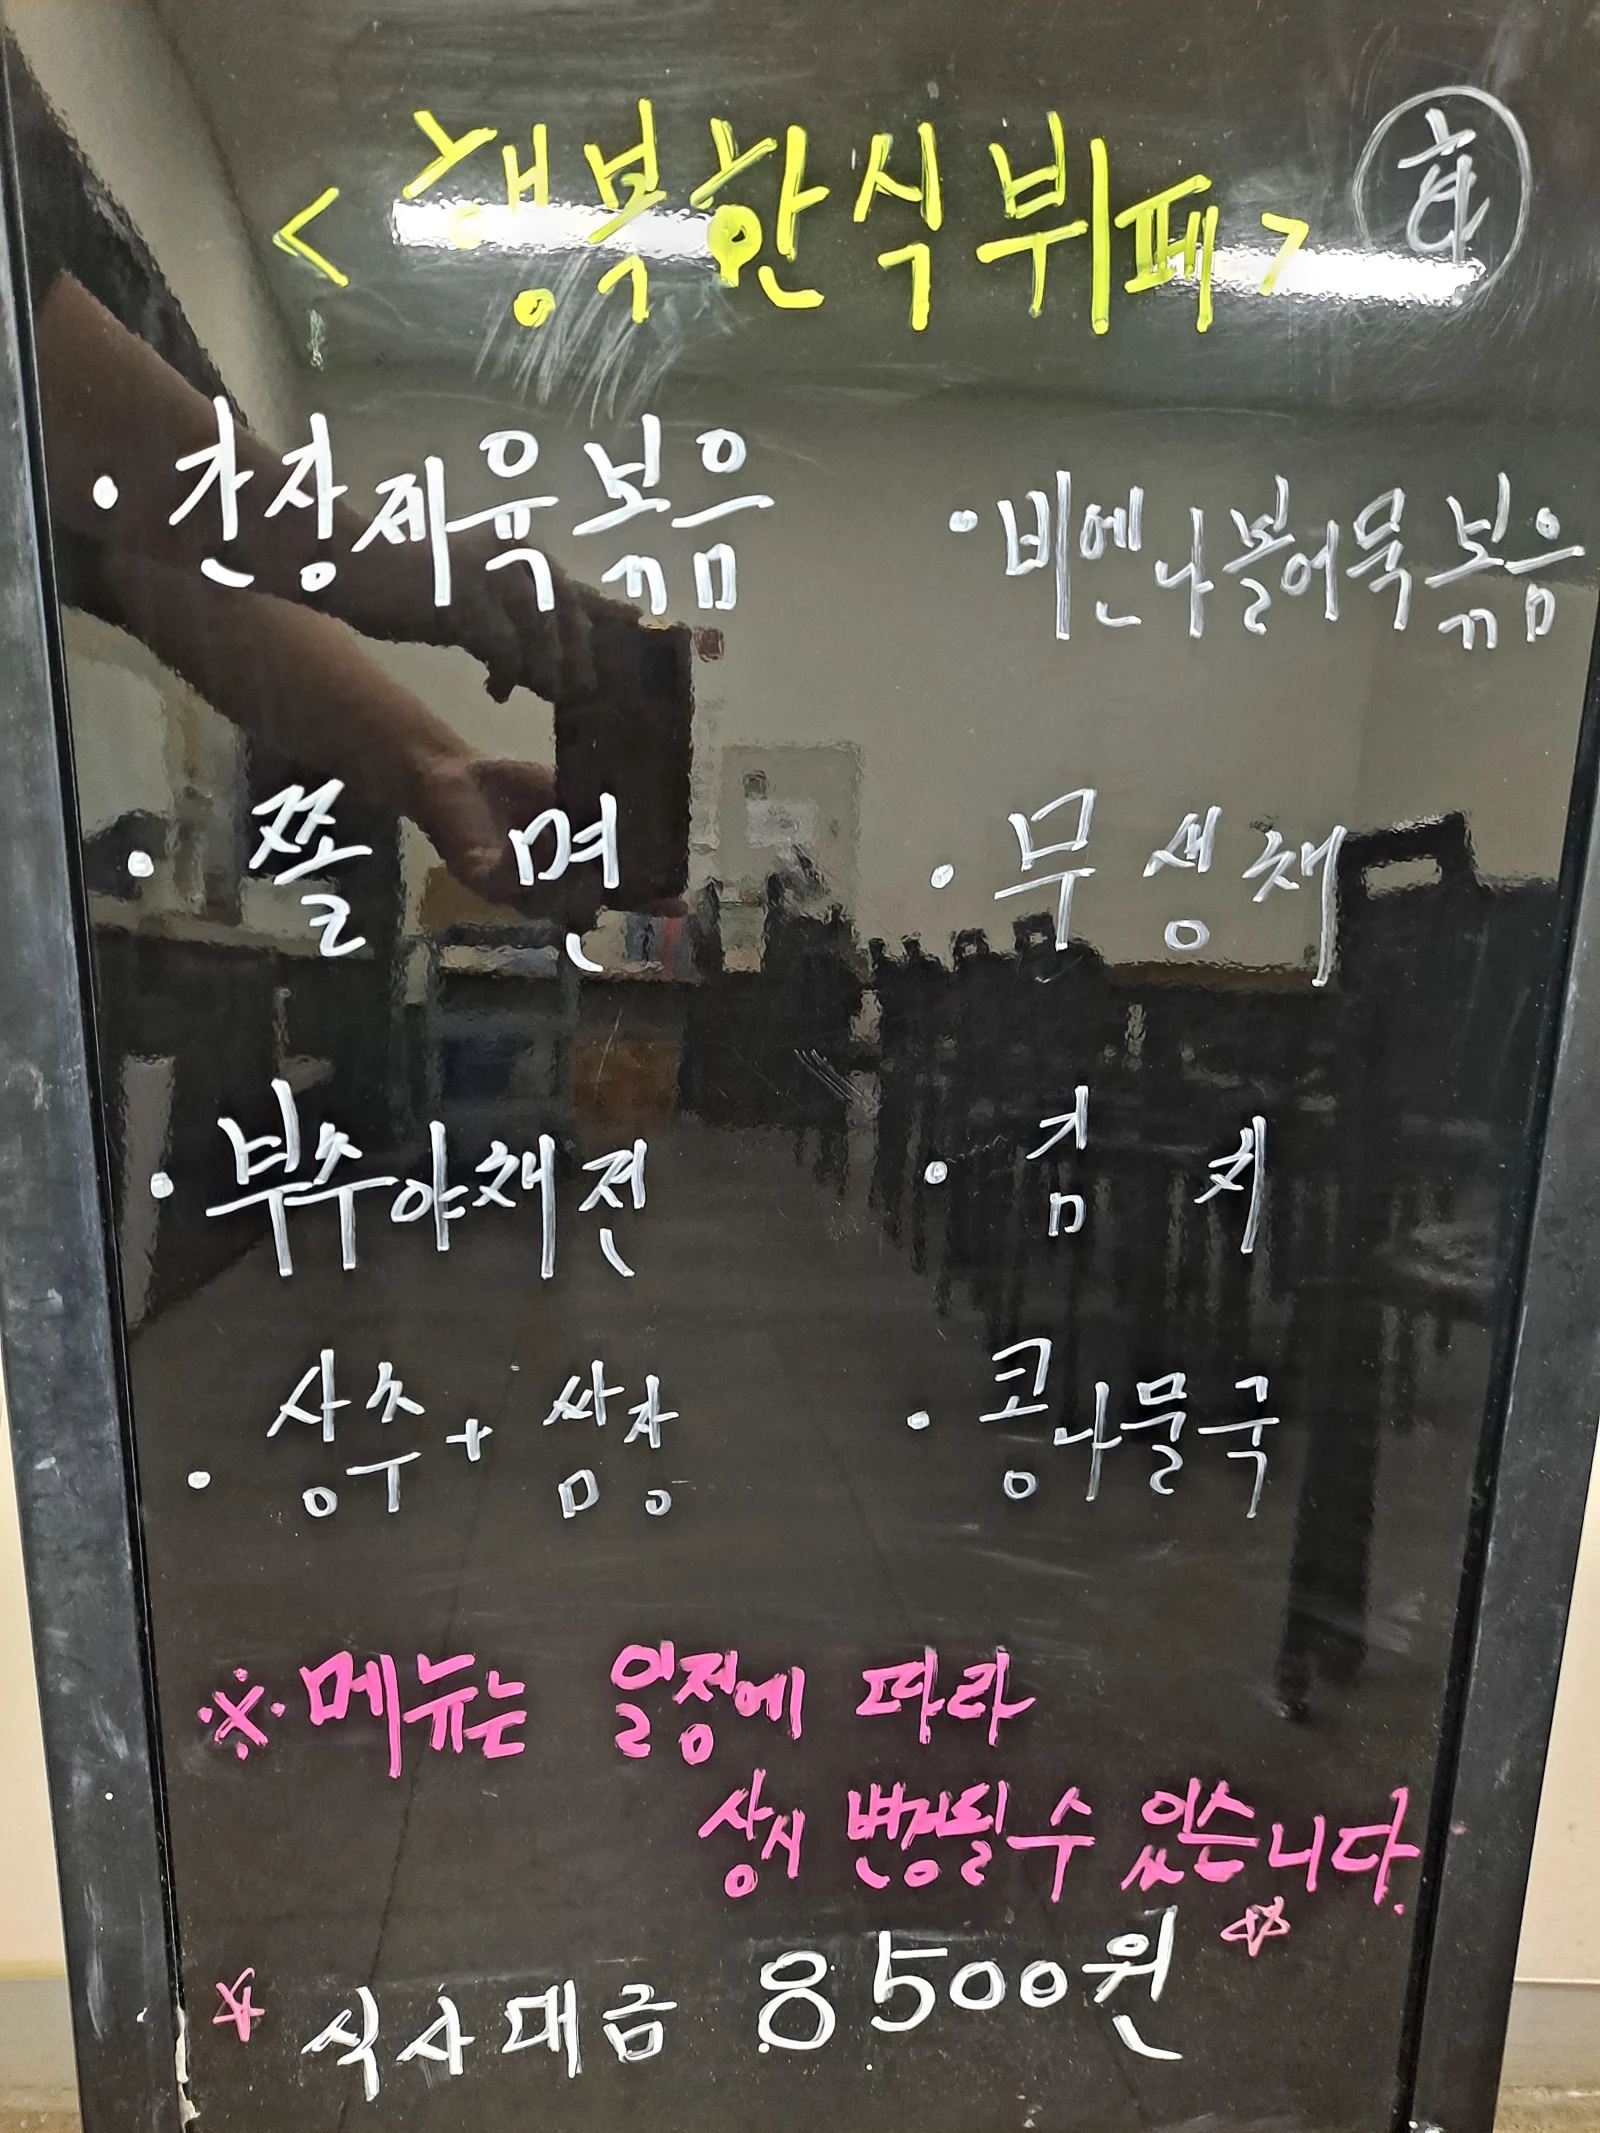 <행복한식뷔페> 화
· 간장제육볶음
· 비엔나볼어묵볶음
· 쫄면
· 무생채
· 부추야채전
· 김치
· 상추+쌈장
· 콩나물국
※메뉴는 일정에 따라
상시 변경될 수 있습니다.
☆식사대금 8500원☆